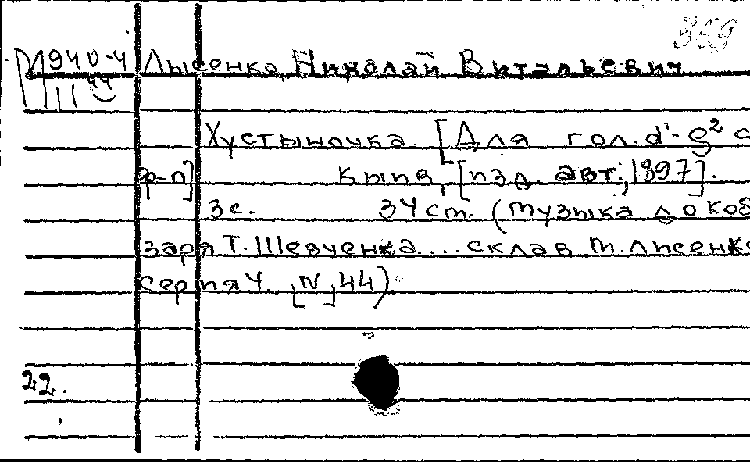 359
М 940-4 Лысенко, Николай Витальевич
1144
Хустыночка. [Для гол. d'-g² с
ф-п] Кыпв, [изд. авт., 1897].
3 с. 34 ст. (Музыка до коб
заря Т. Шевченка... склав М. Лисенк
серпя 4. [N] 44).
22.